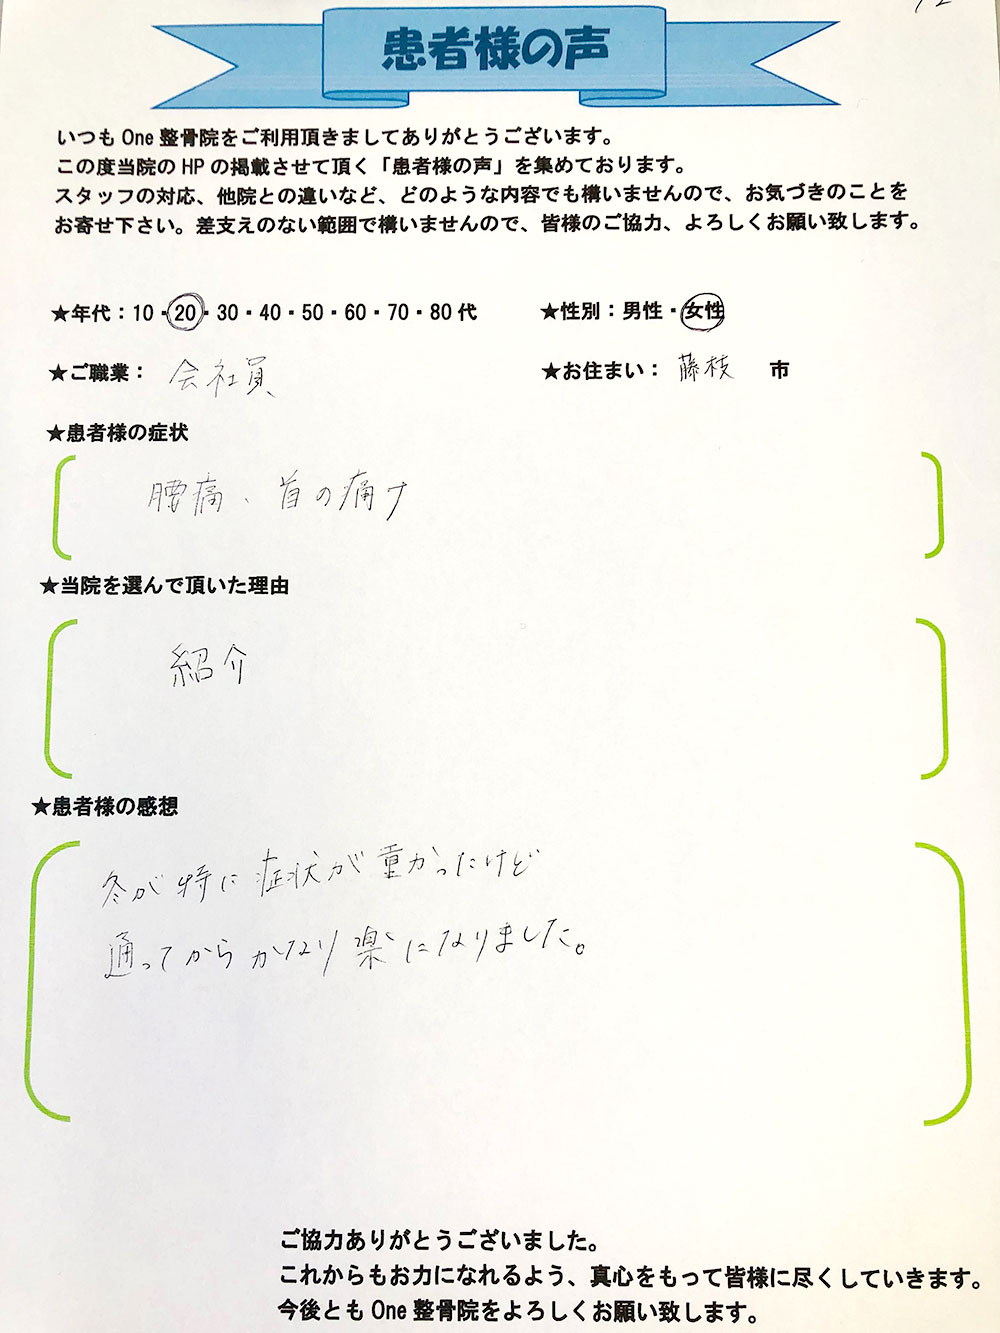 患者様の声
いつも One 整骨院をご利用頂きましてありがとうございます。
この度当院の HP の掲載させて頂く「患者様の声」を集めております。
スタッフの対応、他院との違いなど、どのような内容でも構いませんので、お気づきのことを
お寄せ下さい。差支えのない範囲で構いませんので、皆様のご協力、よろしくお願い致します。
★年代：10・20・30・40・50・60・70・80 代 ★性別：男性・女性
★ご職業： 会社員 ★お住まい： 藤枝 市
★患者様の症状
腰痛、首の痛み
★当院を選んで頂いた理由
紹介
★患者様の感想
冬が特に症状が重かったけど
通ってからかなり楽になりました。
ご協力ありがとうございました。
これからもお力になれるよう、真心をもって皆様に尽くしていきます。
今後とも One 整骨院をよろしくお願い致します。